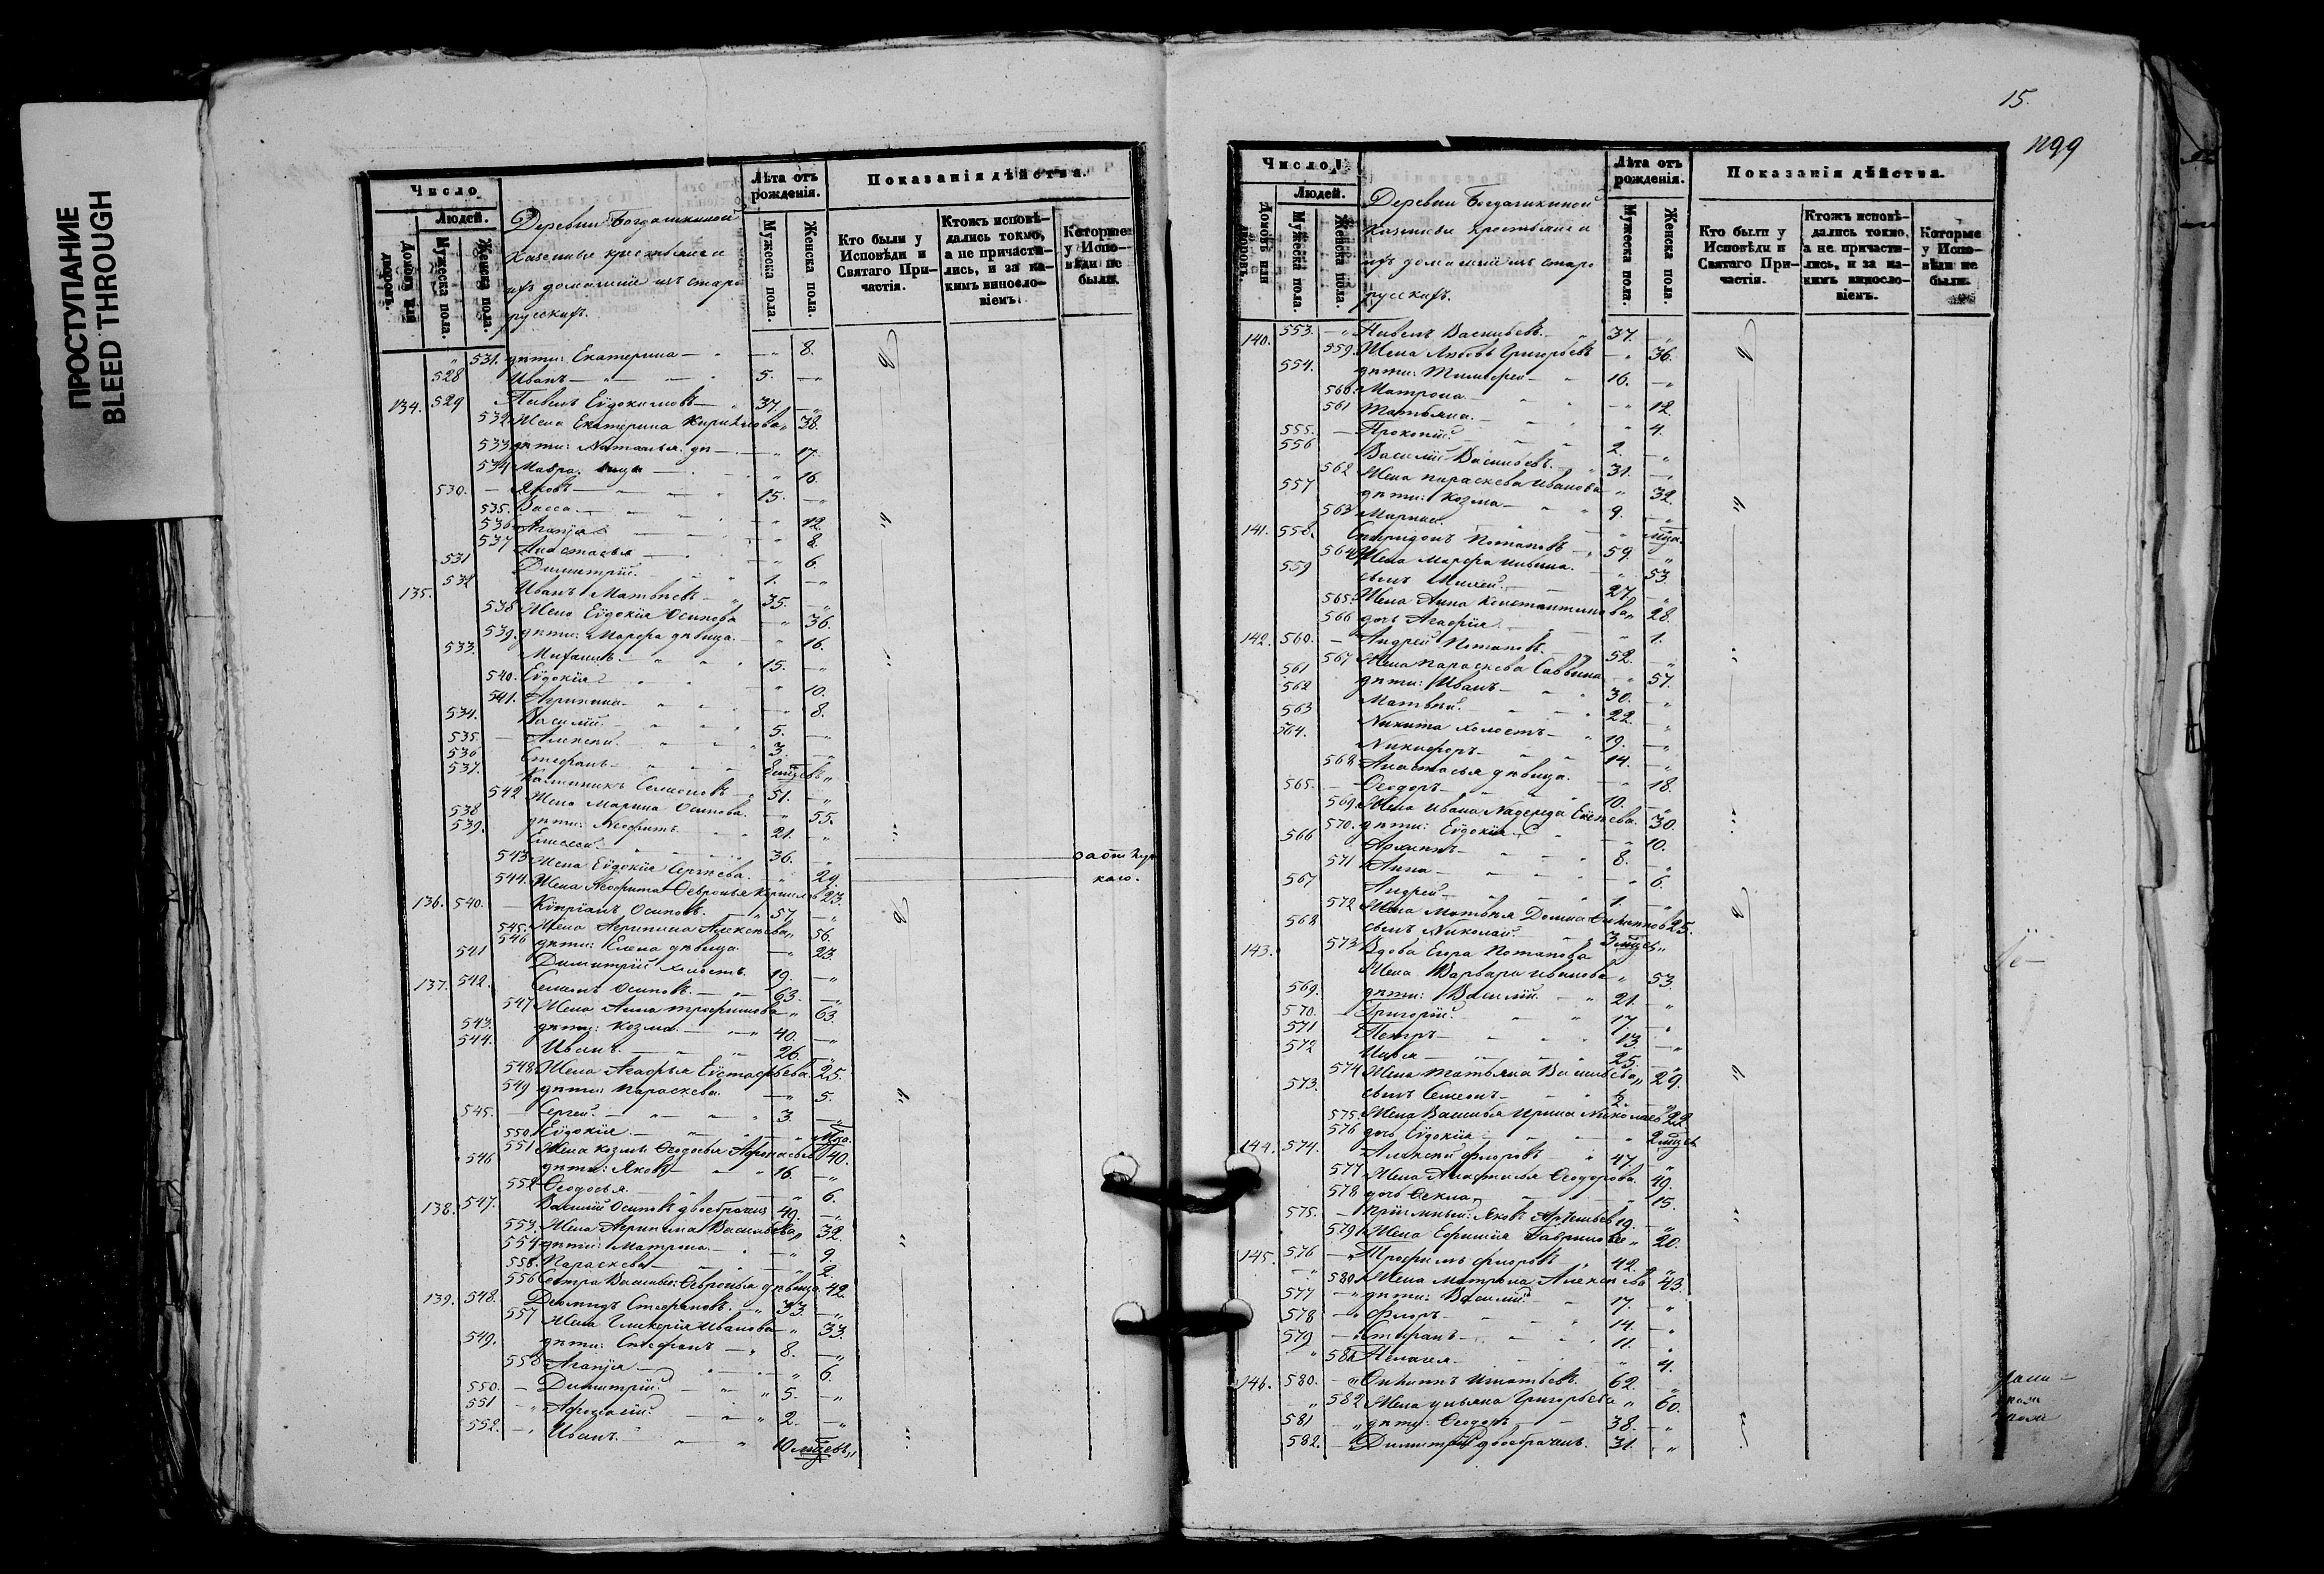 ПРОСТУПАНИЕ
BLEED THROUGH
Число
Людей.
Домовъ или дворовъ.
Мужеска пола.
Женска пола.
Деревни Богдашкиной
Казенные крестьяне и
ихъ домашніе изъ старо
русскихъ.
Лѣта отъ рожденія.
Мужеска пола.
Женска пола.
Показанія дѣйства.
Кто были у Исповѣди и Святаго При-частія.
Ктожъ исповѣ-дались токмо, а не причасти-лись, и за ка-кимъ виносло-віемъ.
Которые у Испо-вѣди не были.
531. дѣти: Екатерина 8.
528 Иванъ 5.
134. 529 Павелъ Еѵдокимовъ 37.
532 Жена Екатерина Кирилова 38.
533 дѣти: Наталья 17.
534 Мавра 16.
530. Яковъ 15.
535. Васса 12.
536 Агапія 8.
537 Анастасья 6.
531 Димитрій. 1.
135. 532 Иванъ Матвѣевъ 35.
538 Жена Еѵдокія Осипова 36.
539. дѣти: Марфа дѣвица 16.
533. Михаилъ 15.
540. Еѵдокія 10.
541. Агрипина 8.
534. Василій. 5.
535. Алексей. 3.
536 Стефанъ 8 мцевъ
537. Калинникъ Семеоновъ 51.
542 Жена Марина Осипова. 55.
538 дѣти: Неофитъ 21.
539. Елисей 36.
543 Жена Еѵдокія Сергѣева. 29.
544. Жена Неофита Февронья Кирилов 23.
136. 540. Кѵпріанъ Осиповъ. 57.
545. Жена Агрипина Алексѣева 56.
546 дѣти: Елена дѣвица. 23
541 Димитрій холостъ. 19.
137. 542. Семенъ Осиповъ. 63.
547 Жена Анна Трофимова 63.
543. дѣти: Козма. 40.
544. Иванъ. 26.
548 Жена Агафья Еѵстафьева. 25.
549 дѣти: Параскева. 5.
545. Сергей. 3.
550. Еѵдокія
551 Жена Козмы Ѳеодосья Афонасьев 40.
546 дѣти: Яковъ 16.
552 Ѳеодосья. 6.
138. 547. Василій Осиповъ двоебрачн 49.
553. Жена Агрипина Васильева 32.
554 дѣти: Матрона 9.
555. Параскева 2.
556 Сестра Василья: Февронья дѣвица 42
139. 548. Деомидъ Стефановъ. 33.
557 Жена Гликерія Иванова 33.
549. дѣти: Стефанъ 8.
558 Агапія 6.
550. Димитрій. 5.
551 Афонасій. 2.
552. Иванъ. 10 мцевъ
15.
1299
Число
Людей.
Домовъ или дворовъ.
Мужеска пола.
Женска пола.
Деревни Богдашкиной
Казенные крестьяне и
ихъ домашніе изъ старо
русскихъ.
Лѣта отъ рожденія.
Мужеска пола.
Женска пола.
Показанія дѣйства.
Кто были у Исповѣди и Святаго При-частія.
Ктожъ исповѣ-дались токмо, а не причасти-лись, и за ка-кимъ виносло-віемъ.
Которые у Испо-вѣди не были.
140. 553. Павелъ Васильевъ. 37.
559 Жена Любовь Григорьев 36.
554. дѣти: Тимофей 16.
560. Матрона 12.
561 Татьяна. 4.
555. Прокопій. 2.
556 Василій Васильевъ. 31.
562 Жена Параскева Иванова 32.
557 дѣти: Козма 9.
563 Марина.
141. 558. Спиридонъ Потаповъ 59.
564 Жена Марфа 53.
559 сынъ Михей. 27.
565. Жена Анна Константинова 28.
566 дочь Агафія 1.
142. 560. Андрей Потаповъ. 52.
567 Жена Параскева Саввина 57.
561 дѣти: Иванъ 30.
562 Матвѣй. 22.
563 Никита холостъ 19.
564. Никифоръ 14.
568 Анастасья дѣвица. 18.
565. Ѳеодоръ 10.
569. Жена Ивана Надежда 30.
570. дѣти: Еѵдокія 10.
566 Архиппъ 8.
571 Анна 6.
567 Андрей 1.
572 Жена Матвѣя Домна 25.
568 сынъ Николай. 3 мцевъ
143. 573 Вдова Егора Потапова
Жена Варвара Иванова 53.
569. дѣти: Василій. 21.
570. Григорій. 17.
571 Петръ 13.
572 Илья 25.
574 Жена Татьяна Васильева 29.
573. сынъ Семенъ 2.
575. Жена Василья Ирина Николаев 22
576 дочь Еѵдокія 2 мцев
144. 574. Алексей Флоровъ 47.
577 Жена Анастасья Ѳеодорова. 49.
578 дочь Ѳекла 15.
575. пріемный: Яковъ 19.
579 Жена Ефимія Гаврилова 20.
145. 576 Трофимъ Флоровъ 42.
580 Жена Матрона Алексѣева 43.
577 дѣти: Василій. 17.
578 Флоръ 14.
579 Стефанъ 11.
581 Пелагея 4.
146. 580. Филиппъ Игнатьевъ. 62.
582 Жена Ульяна Григорьева 60.
581 дѣти: Ѳеодоръ 38.
582. Димитрій двоебрачн. 31.